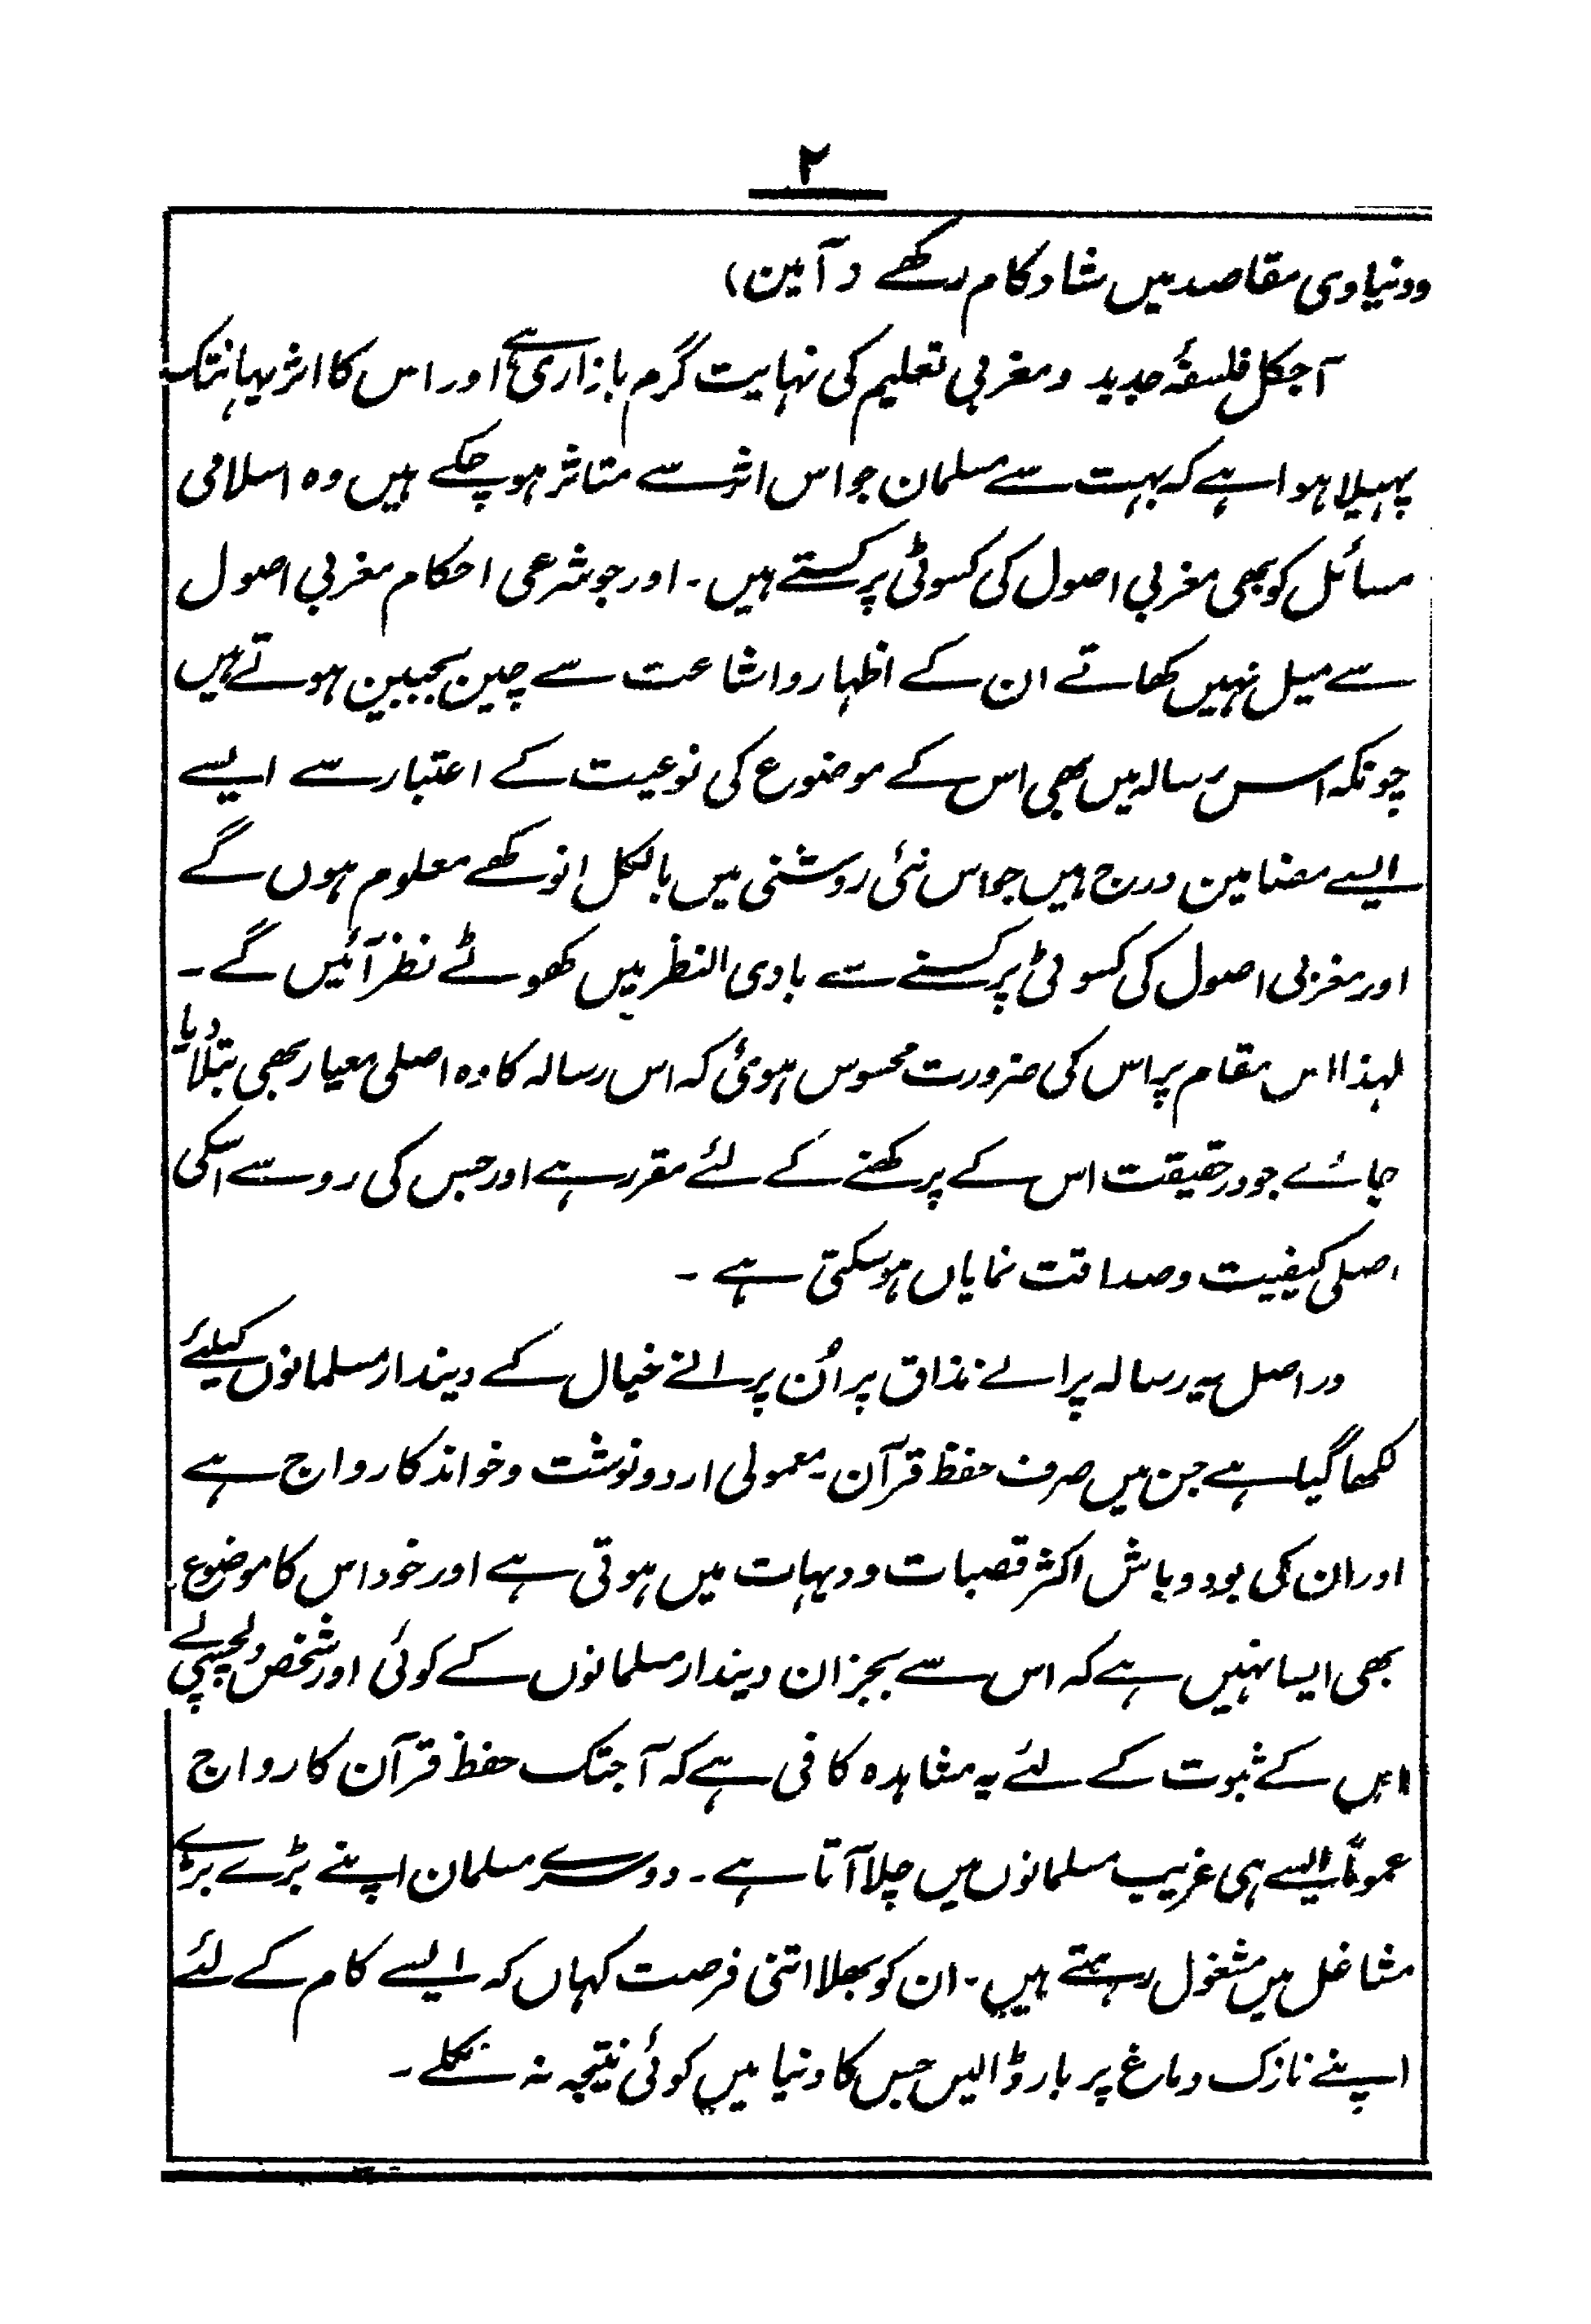 ۲
ودنیاوی مقاصد میں شاد کام رکھے (آمین)
آجکل فلسفۂ جدید و مغربی تعلیم کی نہایت گرم بازاری ہے اور اس کا اثر یہانتک
پہیلا ہوا ہے کہ بہت سے مسلمان جو اس اثر سے متاثر ہو چکے ہیں وہ اسلامی
مسائل کو بھی مغربی اصول کی کسوٹی پر کستے ہیں ۔ اور جو شرعی احکام مغربی اصول
سے میل نہیں کھاتے ان کے اظہار و اشاعت سے چین بجبین ہوتے ہیں
چونکہ اس رسالہ میں بھی اس کے موضوع کی نوعیت کے اعتبار سے ایسے
ایسے مضامین درج ہیں جو اس نئی روشنی میں بالکل انوکھے معلوم ہوں گے
اور مغربی اصول کی کسوٹی پر کسنے سے بادی النظر میں کھوٹے نظر آئیں گے ۔
لہذا اس مقام پر اس کی ضرورت محسوس ہوئی کہ اس رسالہ کا وہ اصلی معیار بھی بتلا دیا
جائے جو درحقیقت اس کے پرکھنے کے لئے مقرر ہے اور جس کی رو سے اسکی
اصلی کیفیت و صداقت نمایاں ہو سکتی ہے ۔
در اصل یہ رسالہ پرانے مذاق پر اُن پرانے خیال کے دیندار مسلمانوں کیلئے
لکھا گیا ہے جن میں صرف حفظ قرآن ۔ معمولی اردو نوشت و خواند کا رواج ہے
اور ان کی بود و باش اکثر قصبات و دیہات میں ہوتی ہے اور خود اس کا موضوع
بھی ایسا نہیں ہے کہ اس سے بجز ان دیندار مسلمانوں کے کوئی اور شخص دلچسپی لے
اس کے ثبوت کے لئے یہ مشاہدہ کافی ہے کہ آجتک حفظ قرآن کا رواج
عموماً ایسے ہی غریب مسلمانوں میں چلا آتا ہے ۔ دوسرے مسلمان اپنے بڑے بڑے
مشاغل میں مشغول رہتے ہیں ۔ ان کو بھلا اتنی فرصت کہاں کہ ایسے کام کے لئے
اپنے نازک دماغ پر بار ڈالیں جس کا دنیا میں کوئی نتیجہ نہ نکلے ۔